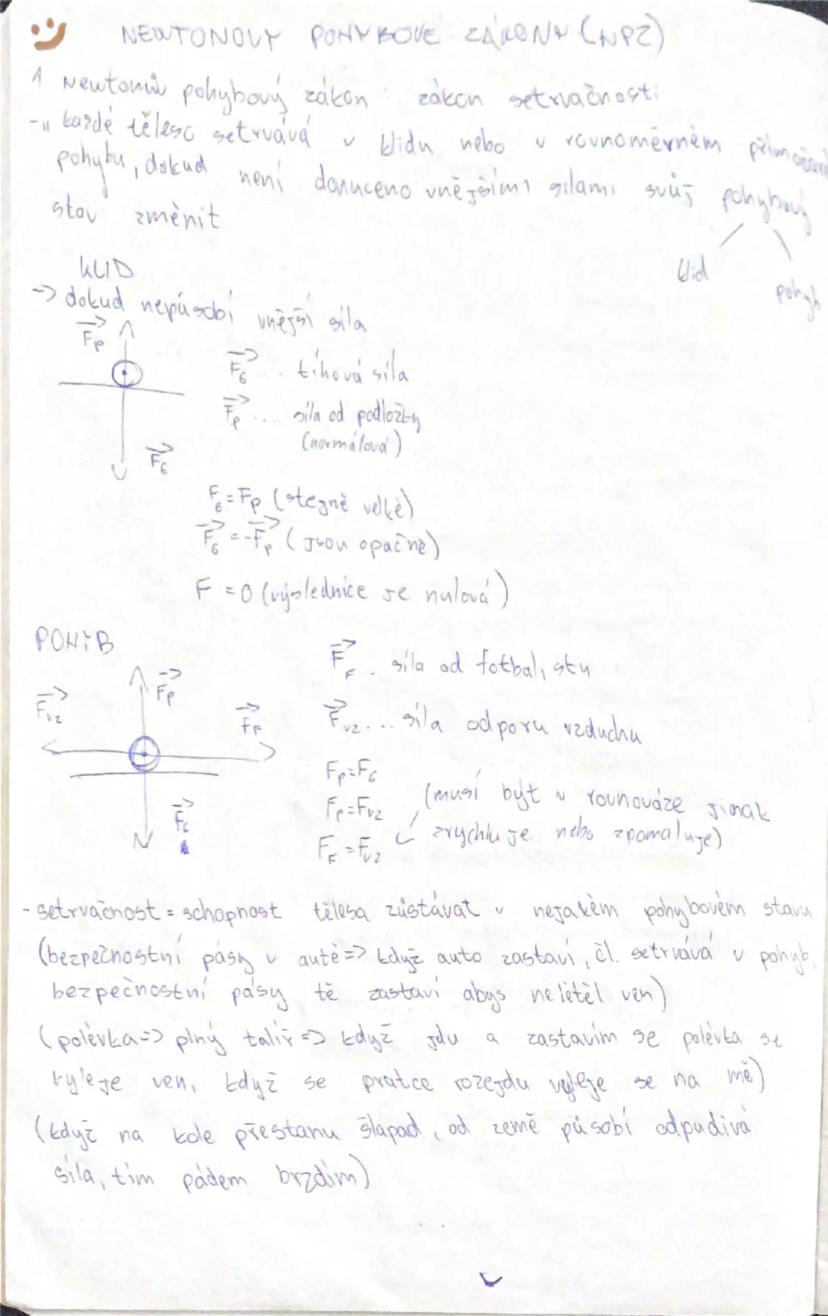 NEWTONOVY POHYBOVÉ ZÁKONY (NPZ)
1 Newtonův pohybový zákon zákon setrvačnosti
-„ každé těleso setrvává v klidu nebo v rovnoměrném
pohybu, dokud není donuceno vnějšími silami svůj pohybový
stav změnit
klid
pohyb
KLID
=> dokud nepůsobí vnější síla
Fp
FG .. tíhová síla
Fp ... síla od podložky
(normálová)
FG
FG = Fp (stejně velké)
FG = -Fp (jsou opačné)
F = 0 (výslednice je nulová)
POHYB
FF . síla od fotbalistu
Fp
Fvz
FF
Fvz ... síla odporu vzduchu
Fp = FG
Fp = Fvz (musí být v rovnováze jinak
FF = Fvz zrychluje nebo zpomaluje)
FG
- setrvačnost = schopnost tělesa zůstávat v nejakém pohybovém stavu
(bezpečnostní pásy v autě => když auto zastaví, čl. setrvává v pohyb.
bezpečnostní pásy tě zastaví abys neletěl ven)
(polévka => plný talíř => když jdu a zastavím se polévka se
vyleje ven, když se prutce rozejdu vyleje se na mě)
(když na kole přestanu šlapad, od země působí odpudivá
síla, tím pádem brzdím)